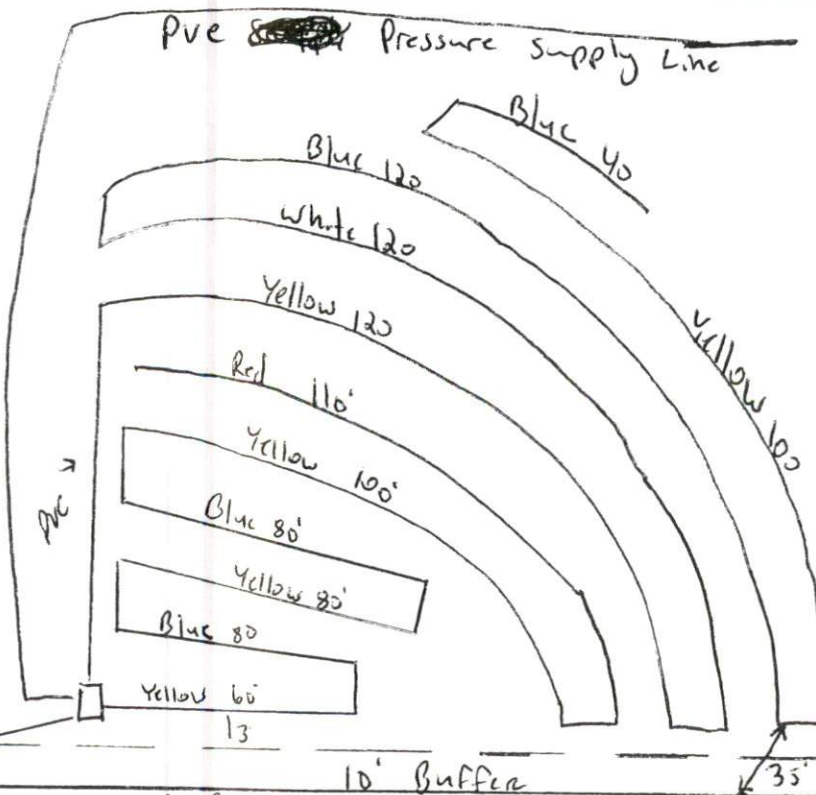 Pvc Pressure Supply Line
Blue 40
Blue 120
White 120
Yellow 120
Yellow 100
Red 110'
Yellow 100'
PVC
Blue 80'
Yellow 80'
Blue 80
Yellow 60'
13
10' Buffer
35'